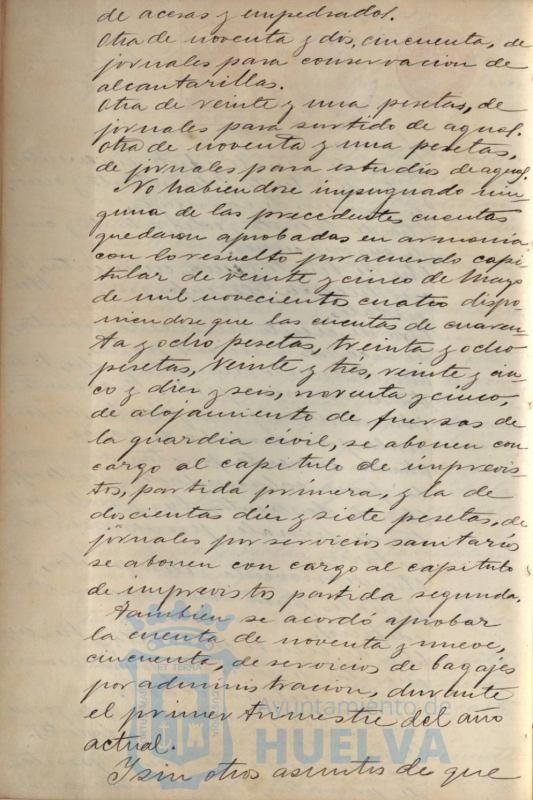 de aceras y empedrados.
Otra de noventa y dos, cincuenta, de
jornales para conservacion de
alcantarillas.
Otra de veinte y una pesetas, de
jornales para surtido de aguas.
Otra de noventa y una pesetas,
de jornales para estudios de aguas.
No habiendose impugnado nin-
guna de las precedentes cuentas
quedaron aprobadas en armonía
con lo resuelto por acuerdo capi-
tular de veinte y cinco de Mayo
de mil novecientos cuatro dispo-
niendose que las cuentas de cuaren-
ta y ocho pesetas, treinta y ocho
pesetas, veinte y trés, veinte y cin-
co y diez y seis, noventa y cinco,
de alojamiento de fuerzas de
la guardia civil, se abonen con
cargo al capitulo de imprevis-
tos, partida primera, y la de
doscientas diez y siete pesetas, de
jornales por servicios sanitarios
se abonen con cargo al capitulo
de imprevistos partida segunda.
Tambien se acordó aprobar
la cuenta de noventa y nueve,
cincuenta, de servicios de bagajes
por administracion, durante
el primer trimestre del año
actual.
Y sin otros asuntos de que
Ayuntamiento de
HUELVA